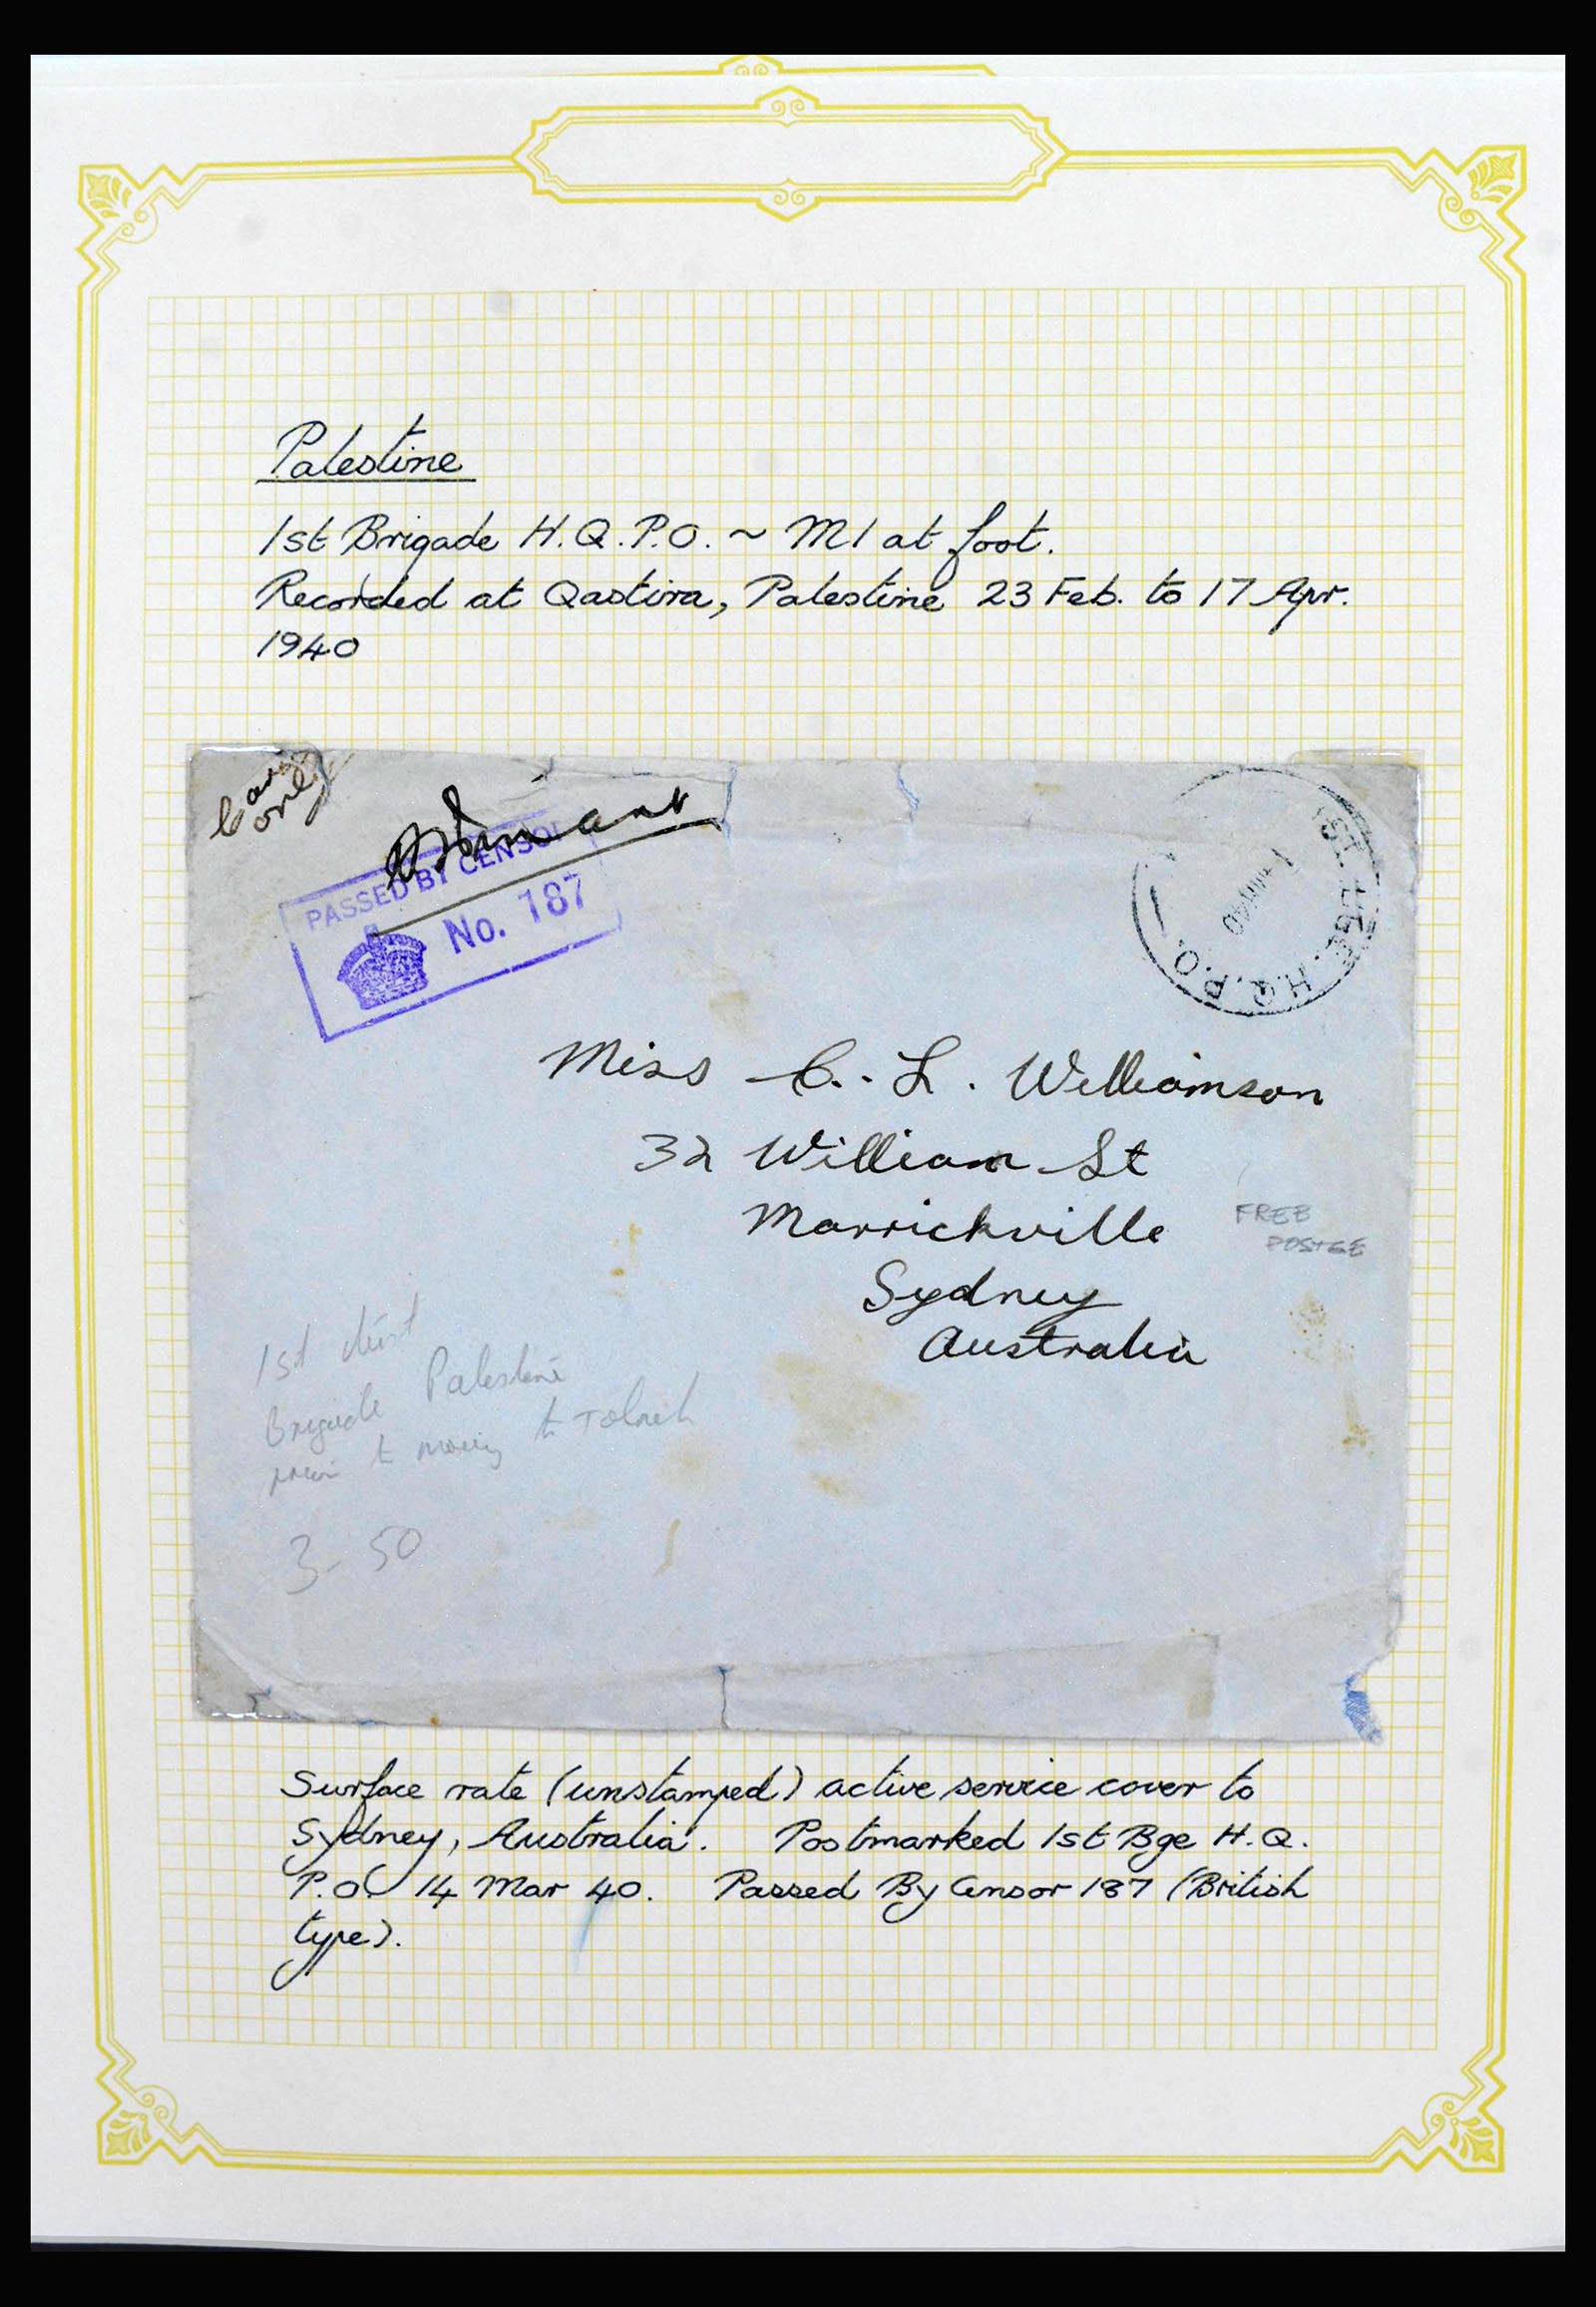 Palestine
1st Brigade H.Q.P.O. ~ M1 at foot.
Recorded at Qastina, Palestine 23 Feb. to 17 Apr.
1940
only
PASSED BY CENSOR
No. 187
1ST. BGE. H.Q. P.O.
Miss C. L. Williamson
32 William St
Marrickville
Sydney
Australia
FREE
POSTGE
1st
Brigade Palestine
prior to moving to Tobruk
3-50
Surface rate (unstamped) active service cover to
Sydney, Australia. Postmarked 1st Bge H.Q.
P.O. 14 Mar 40. Passed By Censor 187 (British
type).